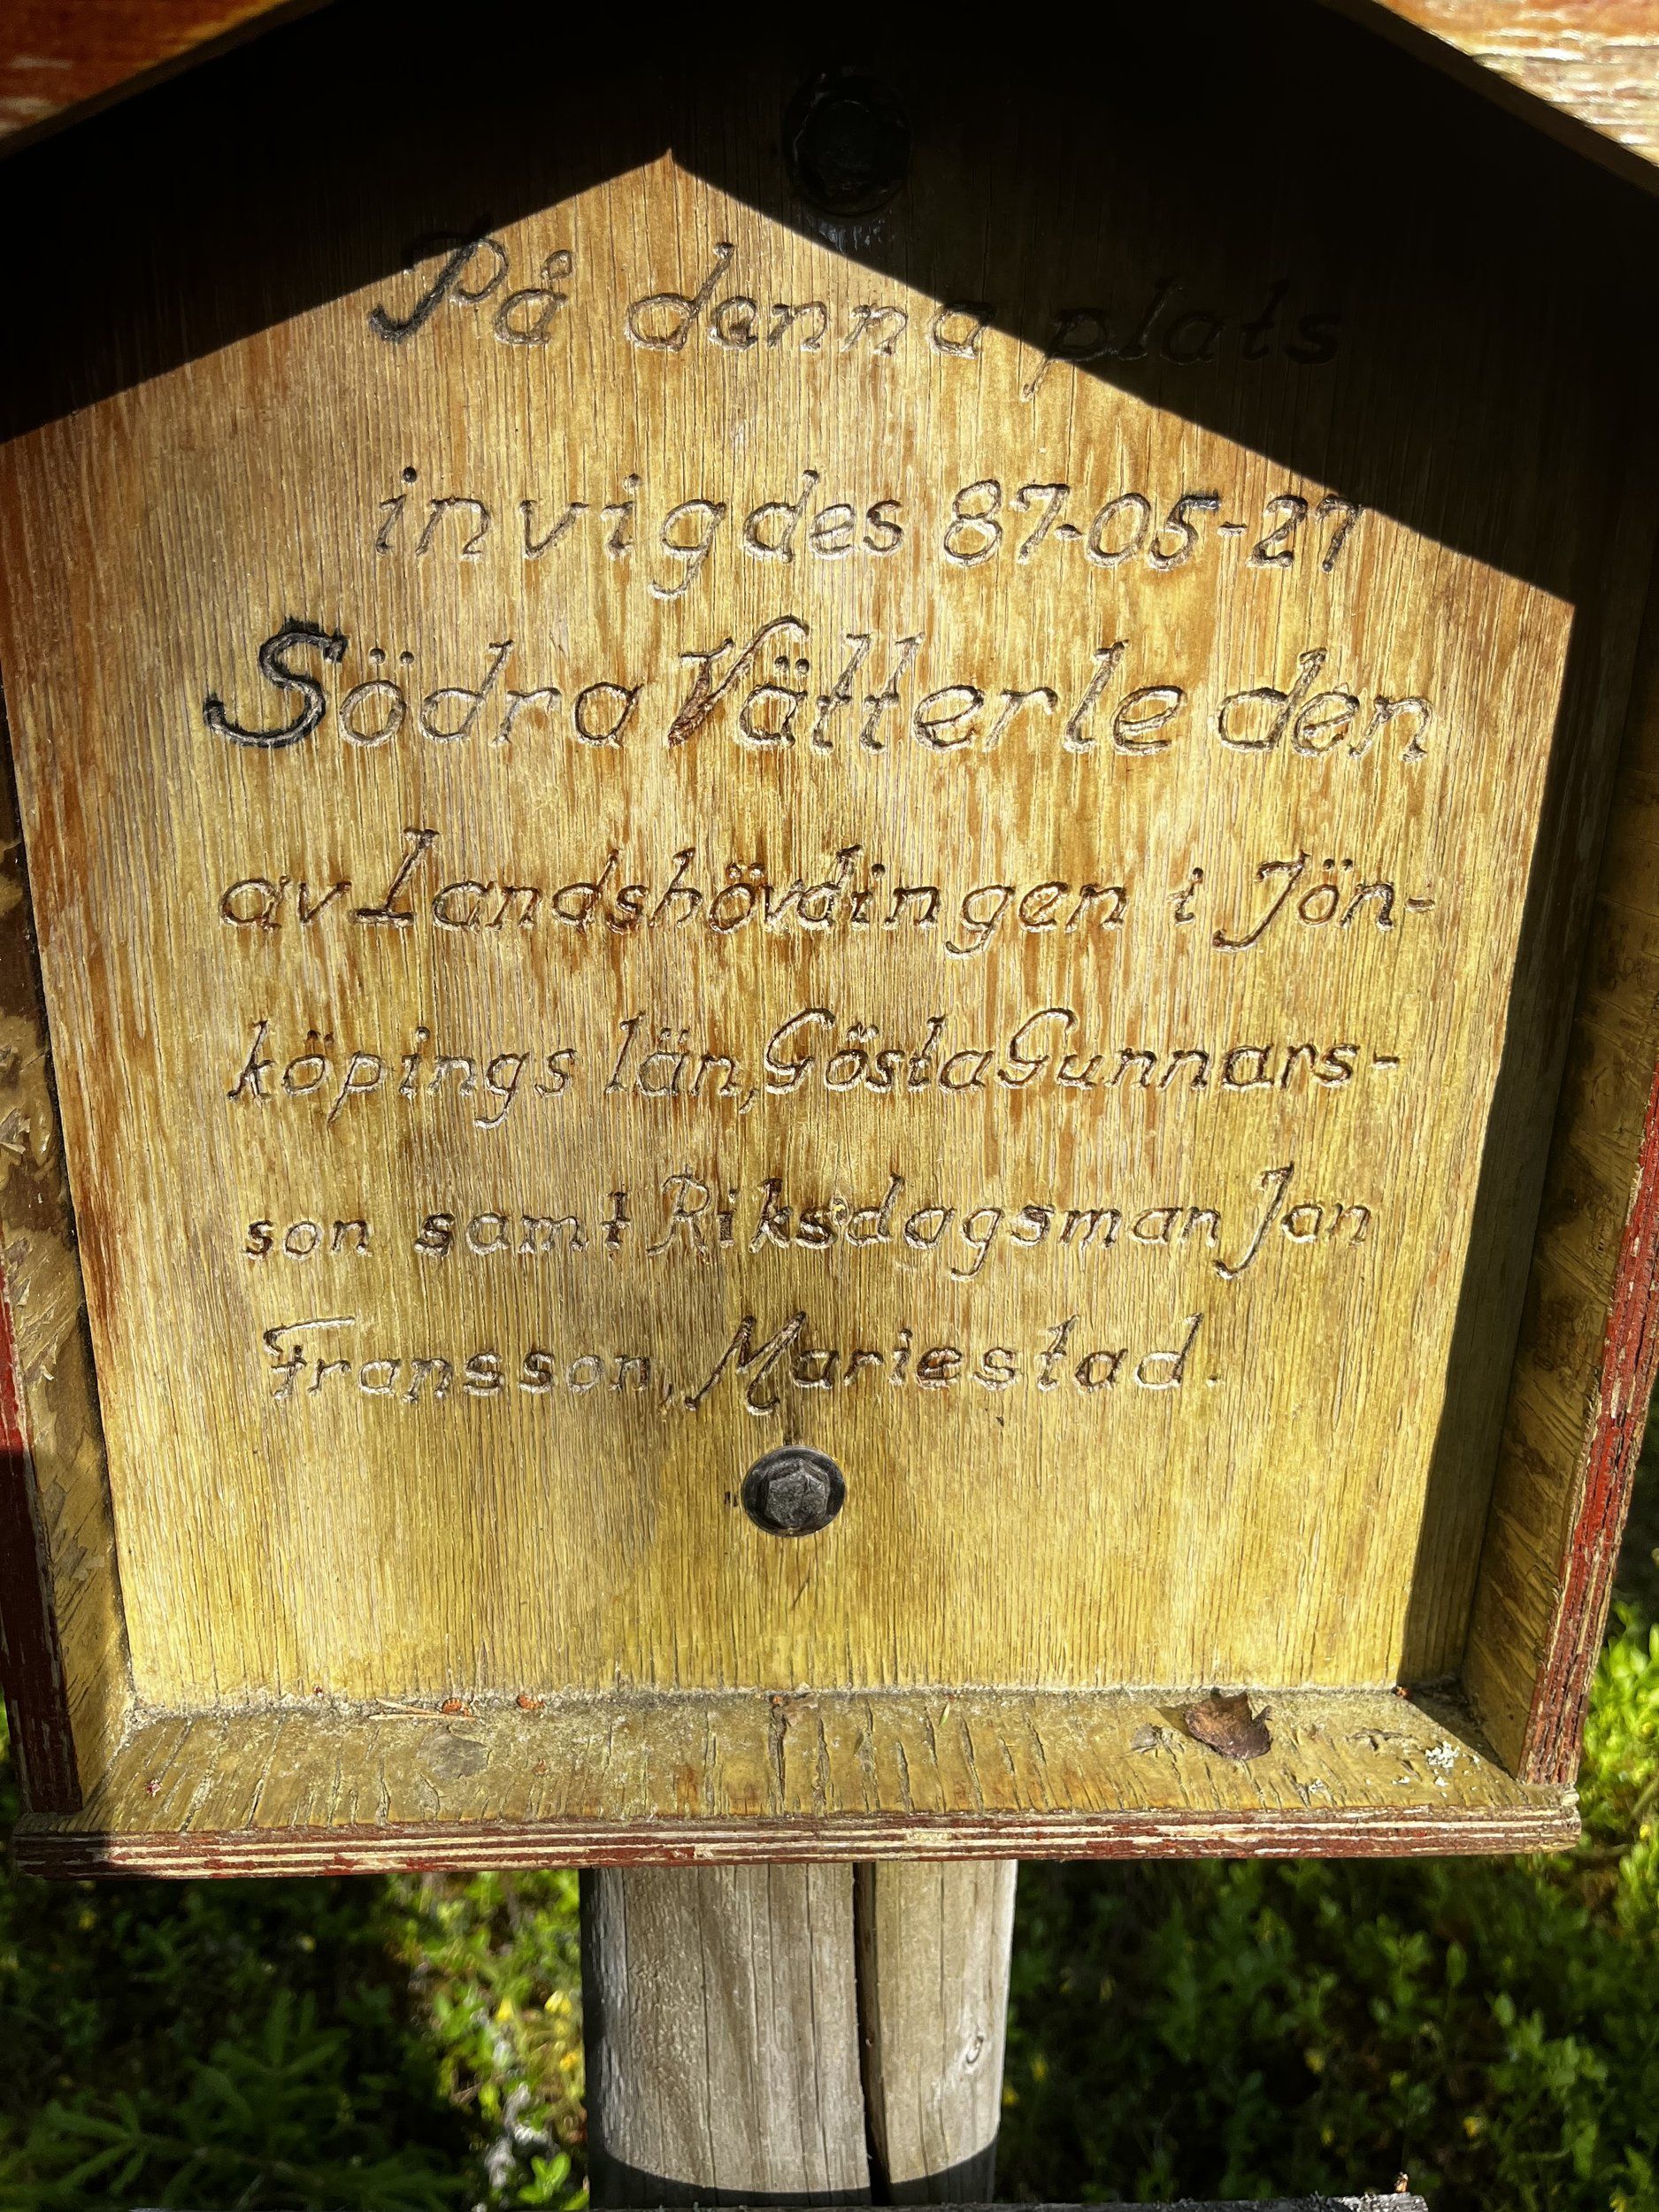 På denna plats
invigdes 87-05-27
Södra Vätterleden
av Landshövdingen i Jön-
köpings län, Gösta Gunnars-
son samt Riksdagsman Jan
Fransson, Mariestad.